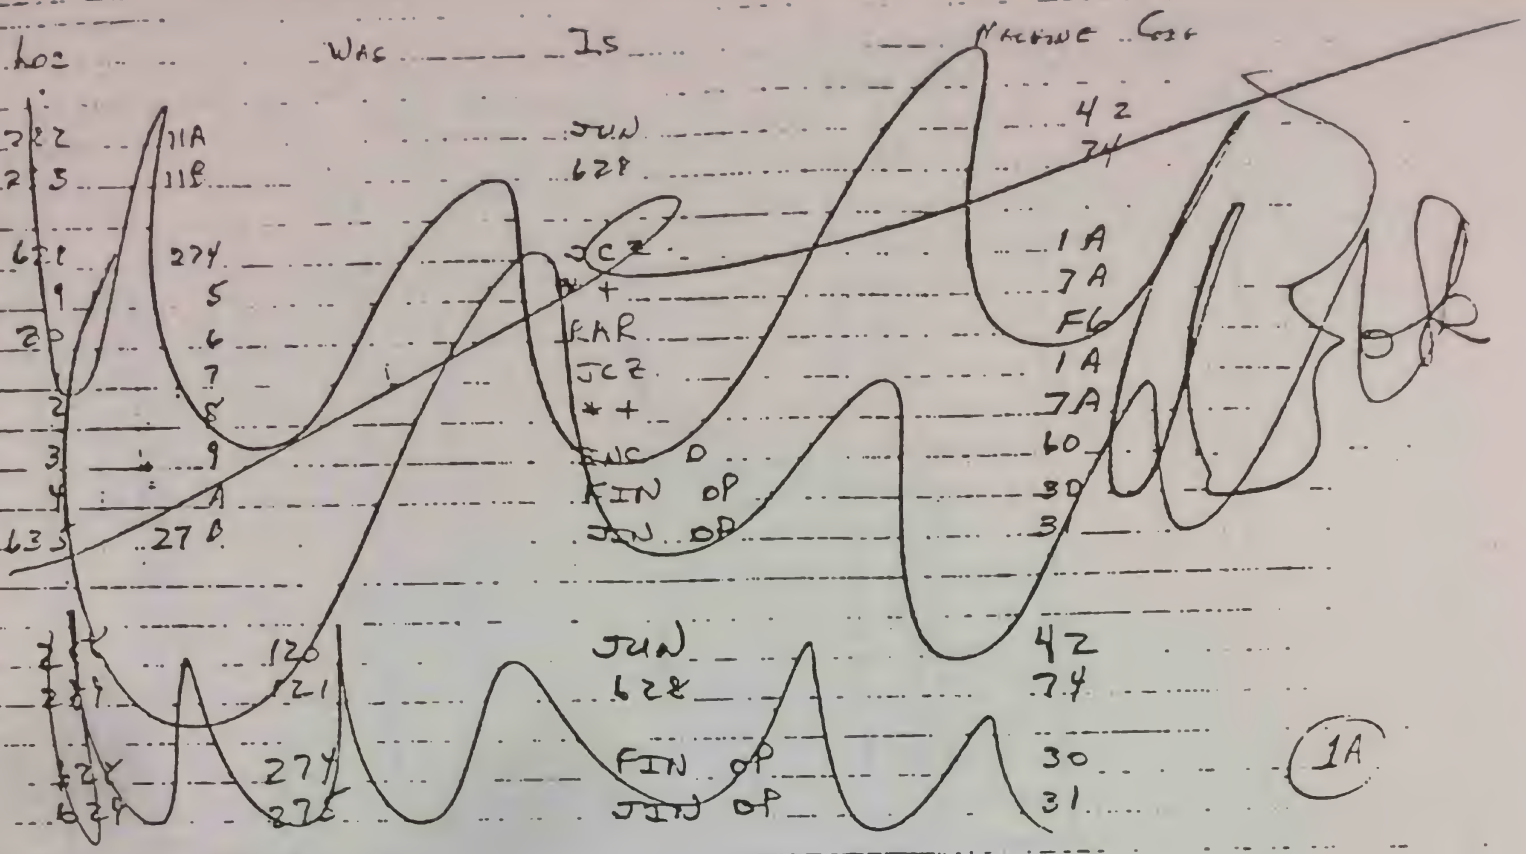 Loc WAS IS MACHINE CODE
282 11A JUN 42
283 11B 628 74
628 274 JCZ 1A
9 5 * + 7A
30 6 RAR F6
7 JCZ 1A
2 8 * + 7A
3 9 INC 0 60
4 A FIN 0P 30
635 27B JIN 0P 31
288 120 JUN 42
289 121 628 74
628 274 FIN 0P 30
629 275 JIN 0P 31
1A